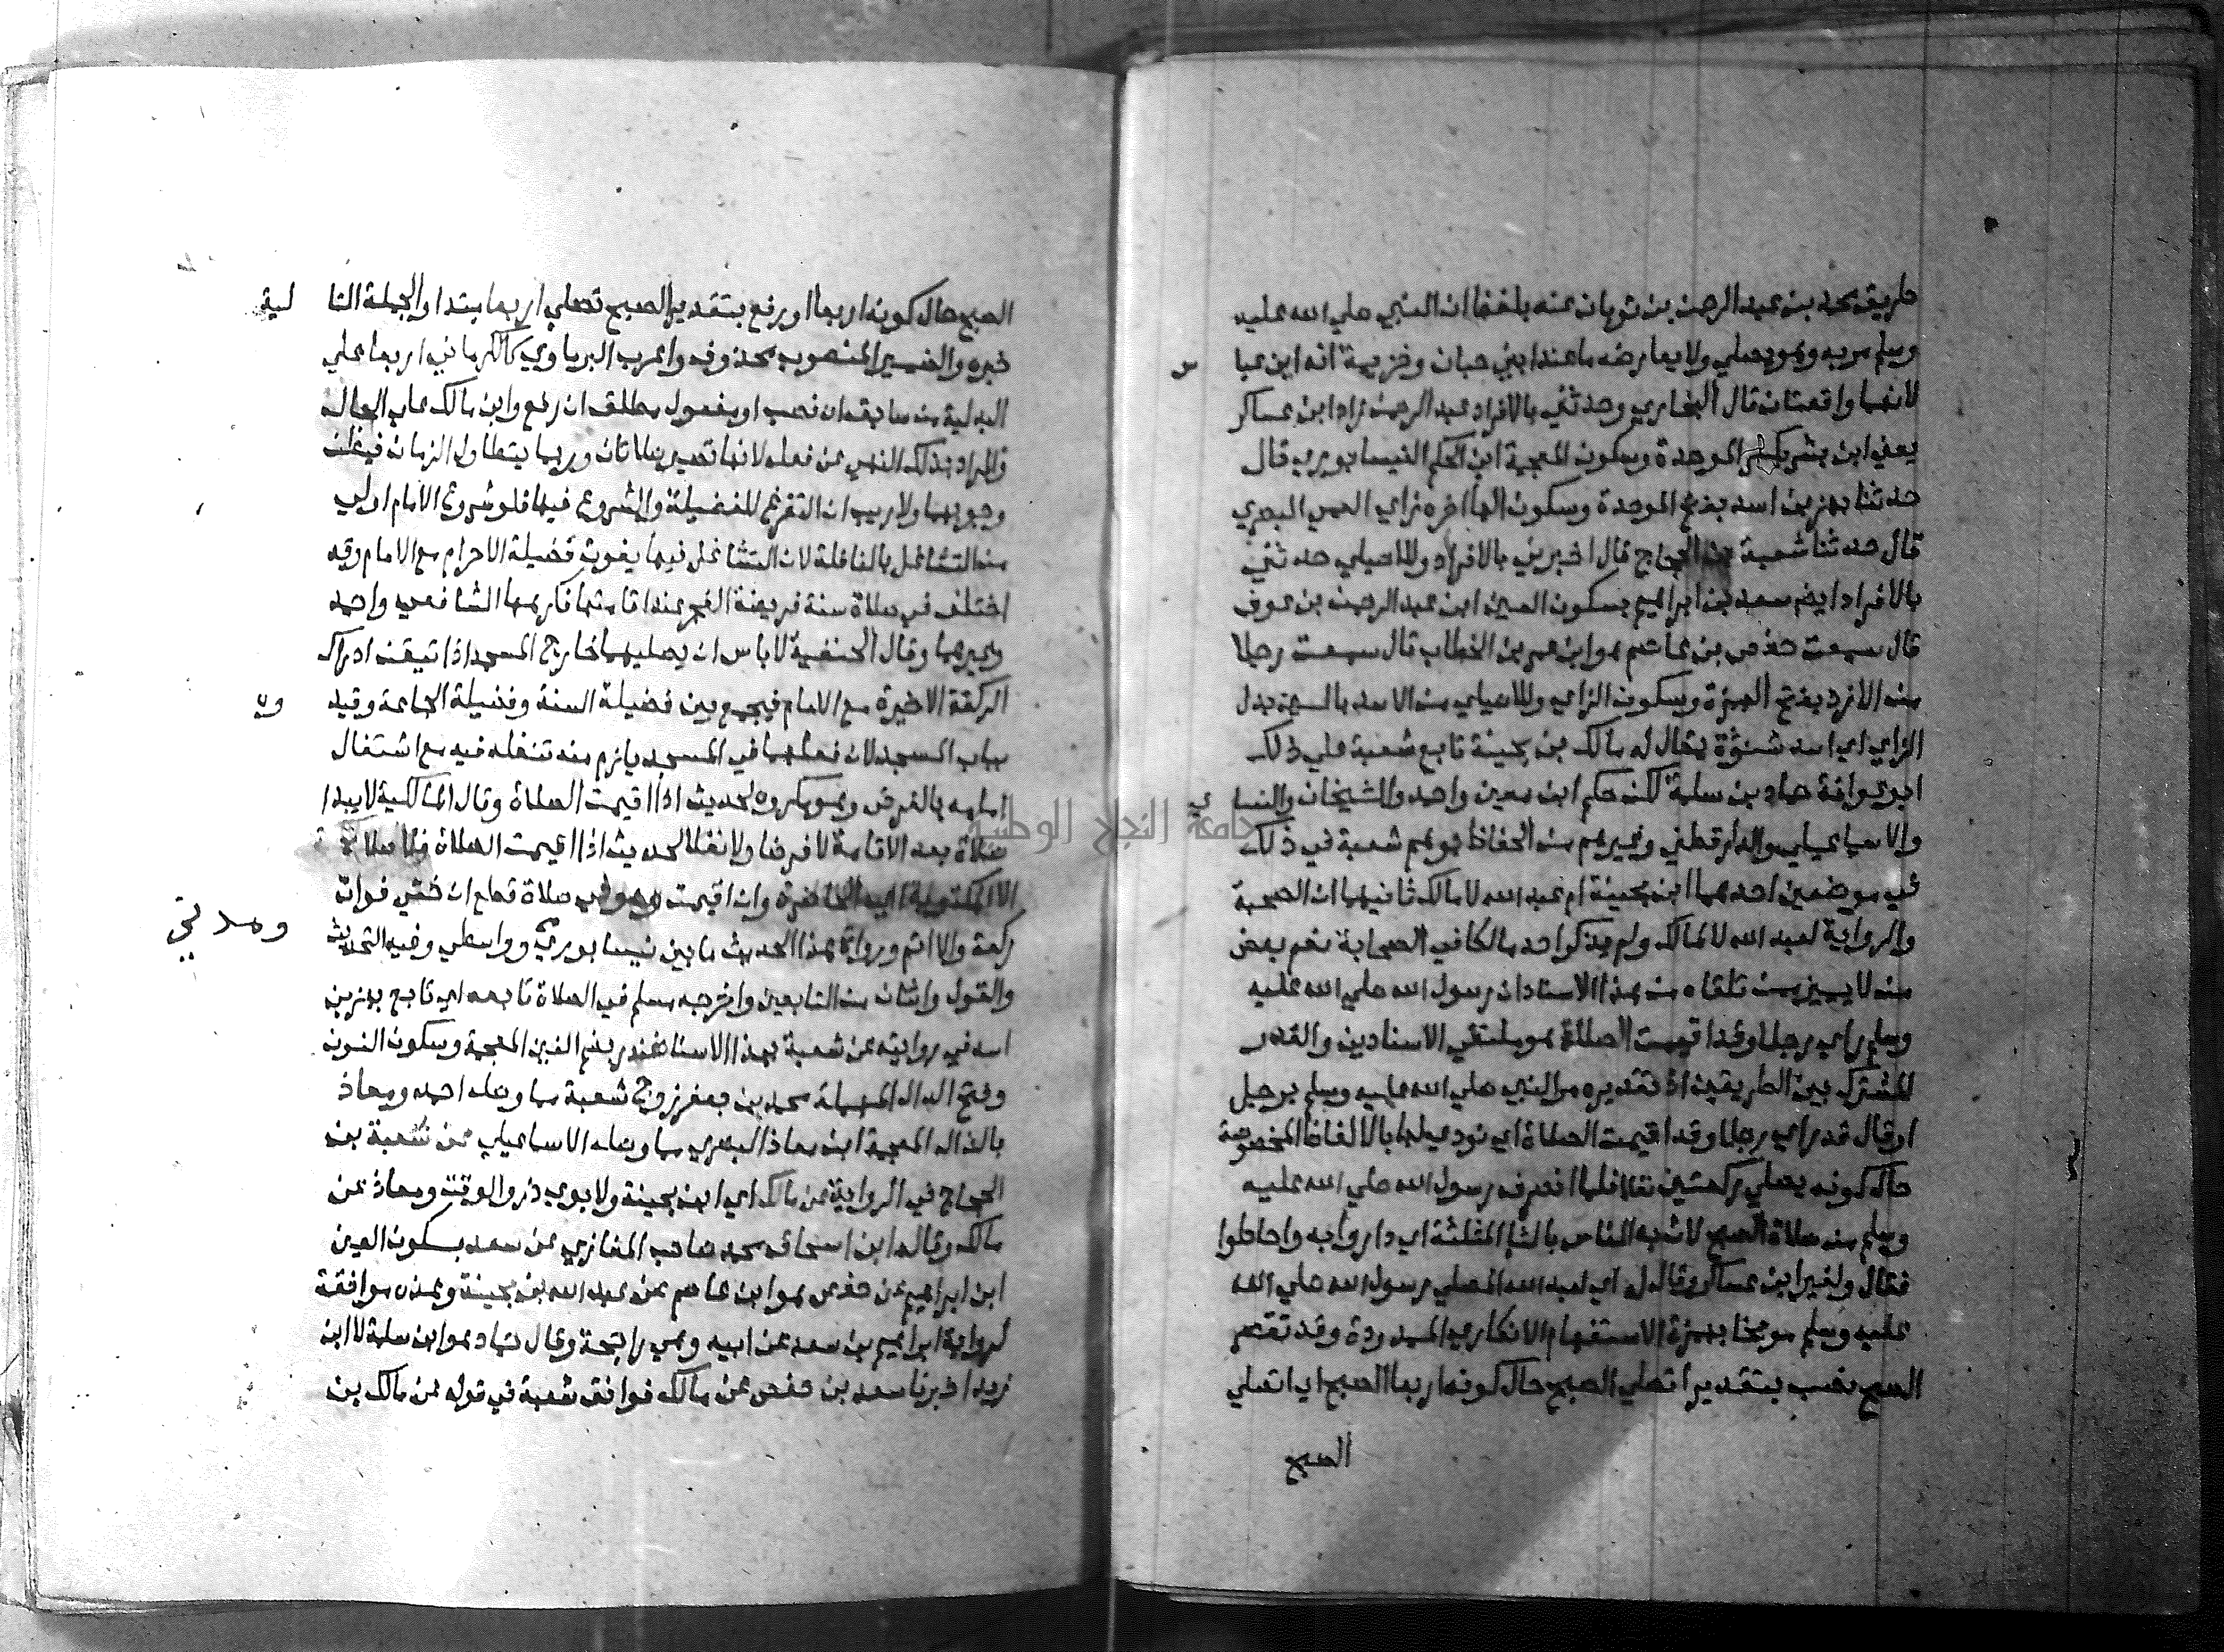 طريق محمد بن عبد الرحمن بن ثوبان عنه بلفظ ان النبي صلي الله عليه
وسلم مر به وهو يصلي ولا يعارضه ما عند ابني حبان وخزيمة انه ابن عبا س
لانهما واقعتان قال البخاري وحدثني بالافراد عبد الرحمن زاد ابن عساكر
يعني ابن بشر بكسر الموحدة وسكون المعجمة ابن الحكم النيسابوري قال
حدثنا بهز بن اسد بفتح الموحدة وسكون الها اخره زاي العمي البصري
قال حدثنا شعبة بن الحجاج قال اخبرني بالافراد وللاصيلي حدثني
بالافراد ايضا سعد بن ابراهيم بسكون العين ابن عبد الرحمن بن عوف
قال سمعت حفص بن عاصم هو ابن عمر بن الخطاب قال سمعت رجلا
من الازد بفتح الهمزة وسكون الزاي وللاصيلي من الاسد بالسين بدل
الزاي اي اسد شنؤة يقال له مالك بن بحينة تابع شعبة علي ذلك
ابو عوانة حماد بن سلمة لكن حكم ابن معين واحمد والشيخان والنسا ي
والاسماعيلي والدارقطني وغيرهم من الحفاظ بوهم شعبة في ذلك
في موضعين احدهما ان بحينة ام عبد الله لا مالك ثانيهما ان الصحبة
والرواية لعبد الله لا لمالك ولم يذكر احد مالكا في الصحابة نعم بعض
من لا يميز ممن تلقاه من هذا الاسناد ان رسول الله صلي الله عليه
وسلم راي رجلا وقد اقيمت الصلاة هو ملتقي الاسنادين والقدر
المشترك بين الطريقين اذ تقديره مر النبي صلي الله عليه وسلم برجل
او قال قد راي رجلا وقد اقيمت الصلاة اي نودي لها بالالفاظ المخصوصة
حال كونه يصلي ركعتين نفلا فلما انصرف رسول الله صلي الله عليه
وسلم من صلاة الصبح لاث به الناس بالثا المثلثة اي داروا به واحاطوا
فقال ولغير ابن عساكر وقال له اي لعبد الله المصلي رسول الله صلي الله
عليه وسلم موبخا بهمزة الاستفهام الانكاري الممدودة وقد تقصر
الصبح نصب بتقدير اتصلي الصبح حال كونه اربعا الصبح اي اتصلي
الصبح
الصبح حال كونه اربعا او رفع بتقدير الصبح تصلي اربعا مبتدا والجملة التا لية
خبره والضمير المنصوب محذوف واعرب البرماوي كالكرماني اربعا علي
البدلية من سابقه ان نصب او مفعول مطلق ان رفع وابن مالك علي الحال
والمراد بذلك النهي عن فعله لانها تصير صلاتان وربما يتطاول الزمان فيظن
وجوبهما ولا ريب ان التفرغ للفضيلة والشروع فيها فلو شروع الامام اولي
من التشاغل بالنافلة لان التشاغل فيها يفوت فضيلة الاحرام مع الامام وقد
اختلف في صلاة سنة فريضة الفجر عند اقامتها فكرهها الشافعي واحمد
وغيرهما وقال الحنفية لاباس ان يصليهما خارج المسجد اذا تيقن ادراك
الركعة الاخيرة مع الامام فيجمع بين فضيلة السنة وفضيلة الجماعة وقيد وه
بباب المسجد لان فعلهما في المسجد يلزم منه تنفله فيه مع اشتغال
امامه بالفرض وهو مكروه لحديث اذا اقيمت الصلاة وقال المالكية لا يبدا
صلاة بعد الاقامة لا فرضا ولا نفلا لحديث اذا اقيمت الصلاة فلا صلاة
الا المكتوبة اي الحاضرة وان اقيمت وهو في صلاة قطع ان خشي فوات
ركعة والا اتم ورواة هذا الحديث ما بين نيسابوري وواسطي وفيه التحديث ومدني
والقول واثنان من التابعين واخرجه مسلم في الصلاة تابعه اي تابع بهز بن
اسد في روايته عن شعبة بهذا الاسناد غندر بضم الغين المعجمة وسكون النون
وفتح الدال المهملة محمد بن جعفر زوج شعبة مما وصله احمد ومعاذ
بالذال المعجمة ابن معاذ البصري مما وصله الاسماعيلي عن شعبة بن
الحجاج في الرواية عن مالك اي ابن بحينة ولابوي ذر والوقت ومعاذ عن
مالك وقال ابن اسحاق محمد صاحب المغازي عن سعد بسكون العين
ابن ابراهيم عن حفص هو ابن عاصم عن عبد الله بن بحينة وهذه موافقة
لرواية ابراهيم بن سعد عن ابيه وهي راجحة وقال حماد هو ابن سلمة لا ابن
زيد اخبرنا سعد بن حفص عن مالك فوافق شعبة في قوله عن مالك بن
جامعة النجاح الوطنية